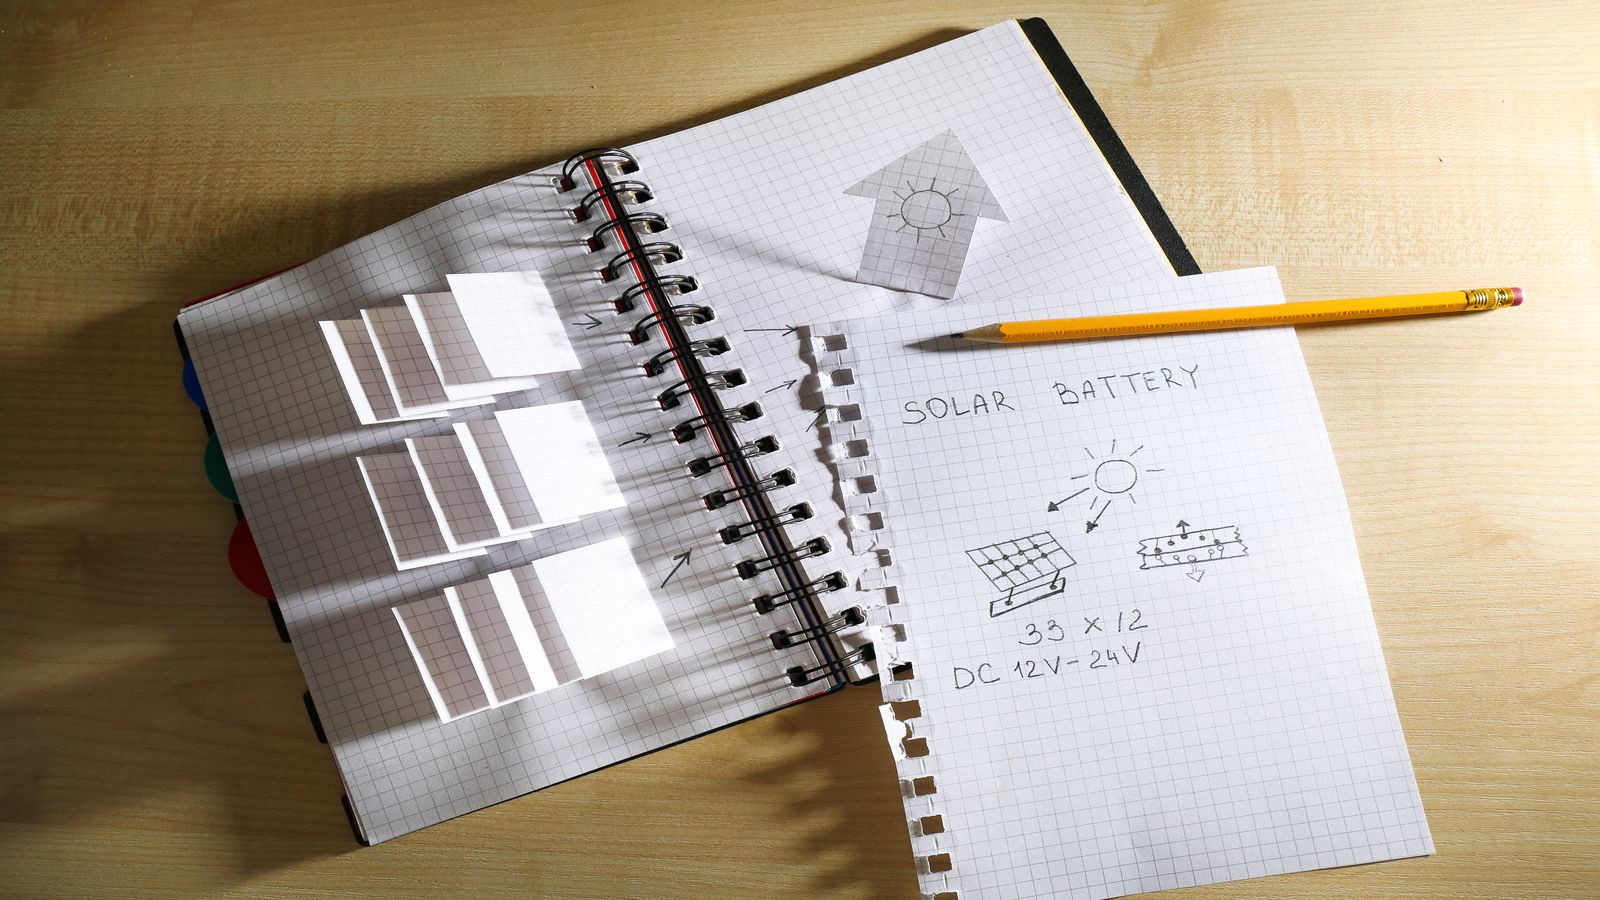 SOLAR BATTERY
33 x 12
DC 12V-24V